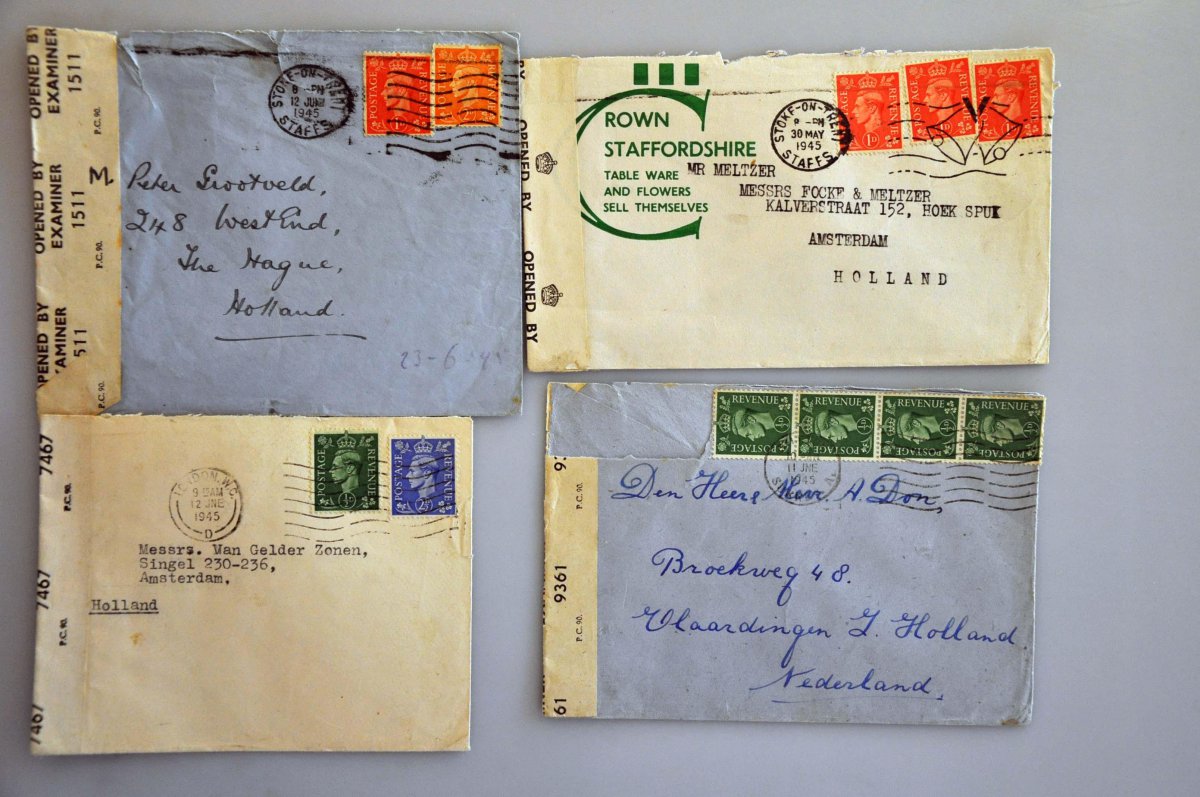 OPENED BY
EXAMINER 1511
P.C. 90.
OPENED BY
EXAMINER 1511
P.C. 90.
PENED BY
AMINER
511
P.C. 90.
STOKE-ON-TRENT
8 - PM
12 JUN
1945
STAFFS.
POSTAGE
1D
POSTAGE
Peter Grootveld,
248 West End,
The Hague,
Holland.
23-6-45
BY
OPENED BY
OPENED BY
ROWN
STAFFORDSHIRE
TABLE WARE
AND FLOWERS
SELL THEMSELVES
STOKE-ON-TRENT
8 - PM
30 MAY
1945
STAFFS.
POSTAGE REVENUE
1D
REVENUE
1D
REVENUE
1D
MR MELTZER
MESSRS FOCKE & MELTZER
KALVERSTRAAT 152, HOEK SPUI
AMSTERDAM
HOLLAND
7467
P.C. 90.
7467
P.C. 90.
7467
LONDON, W.C.
9 15AM
12 JNE
1945
D
POSTAGE REVENUE
½D
POSTAGE REVENUE
2½D
Messrs. Van Gelder Zonen,
Singel 230-236,
Amsterdam,
Holland
9361
P.C. 90.
61
REVENUE
POSTAGE
REVENUE
POSTAGE
REVENUE
POSTAGE
REVENUE
POSTAGE
11 JNE
1945
Den Heer & Mevr. A. Don,
Broekweg 48.
Vlaardingen Z. Holland
Nederland.